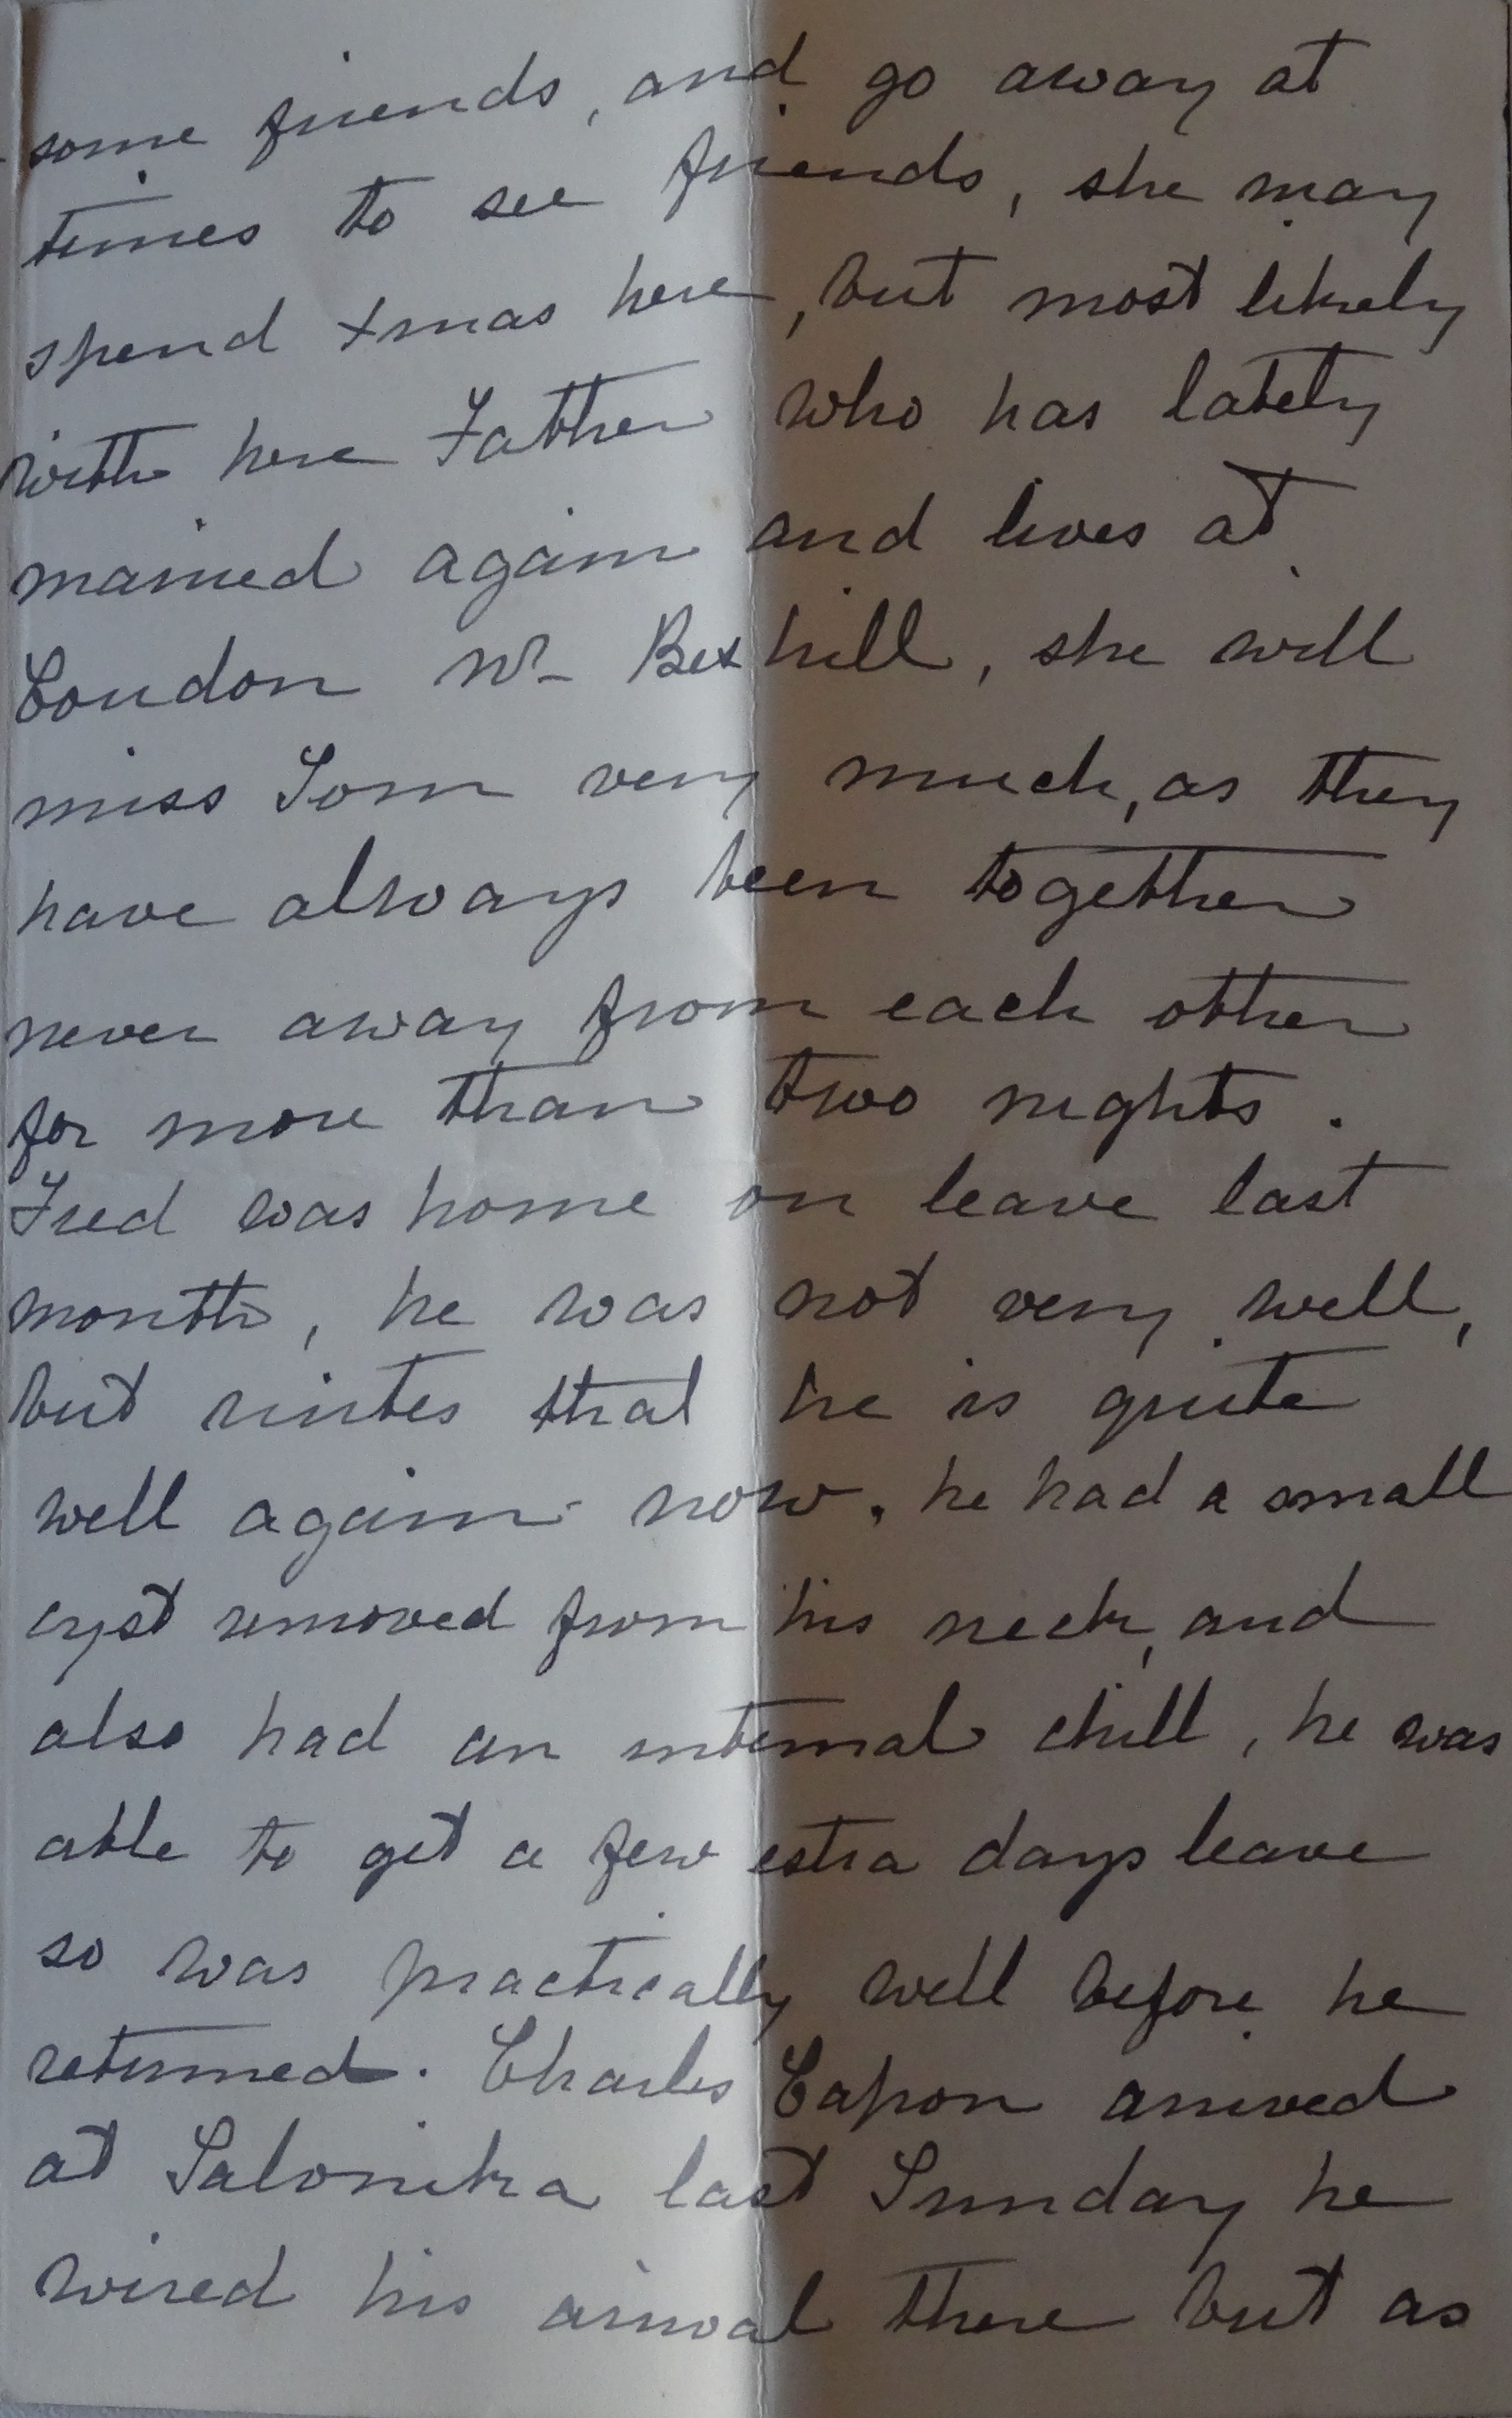 some friends, and go away at
times to see friends, she may
spend Xmas here, but most likely
with here Father who has lately
married again and lives at
Coudon Nr Bexhill, she will
miss Tom very much, as they
have always been together
never away from each other
for more than two nights.
Fred was home on leave last
month, he was not very well,
but writes that he is quite
well again now, he had a small
cyst removed from his neck, and
also had an internal chill, he was
able to get a few extra days leave
so was practically well before he
returned. Charles Capon arrived
at Salonika last Sunday he
wired his arrival there but as